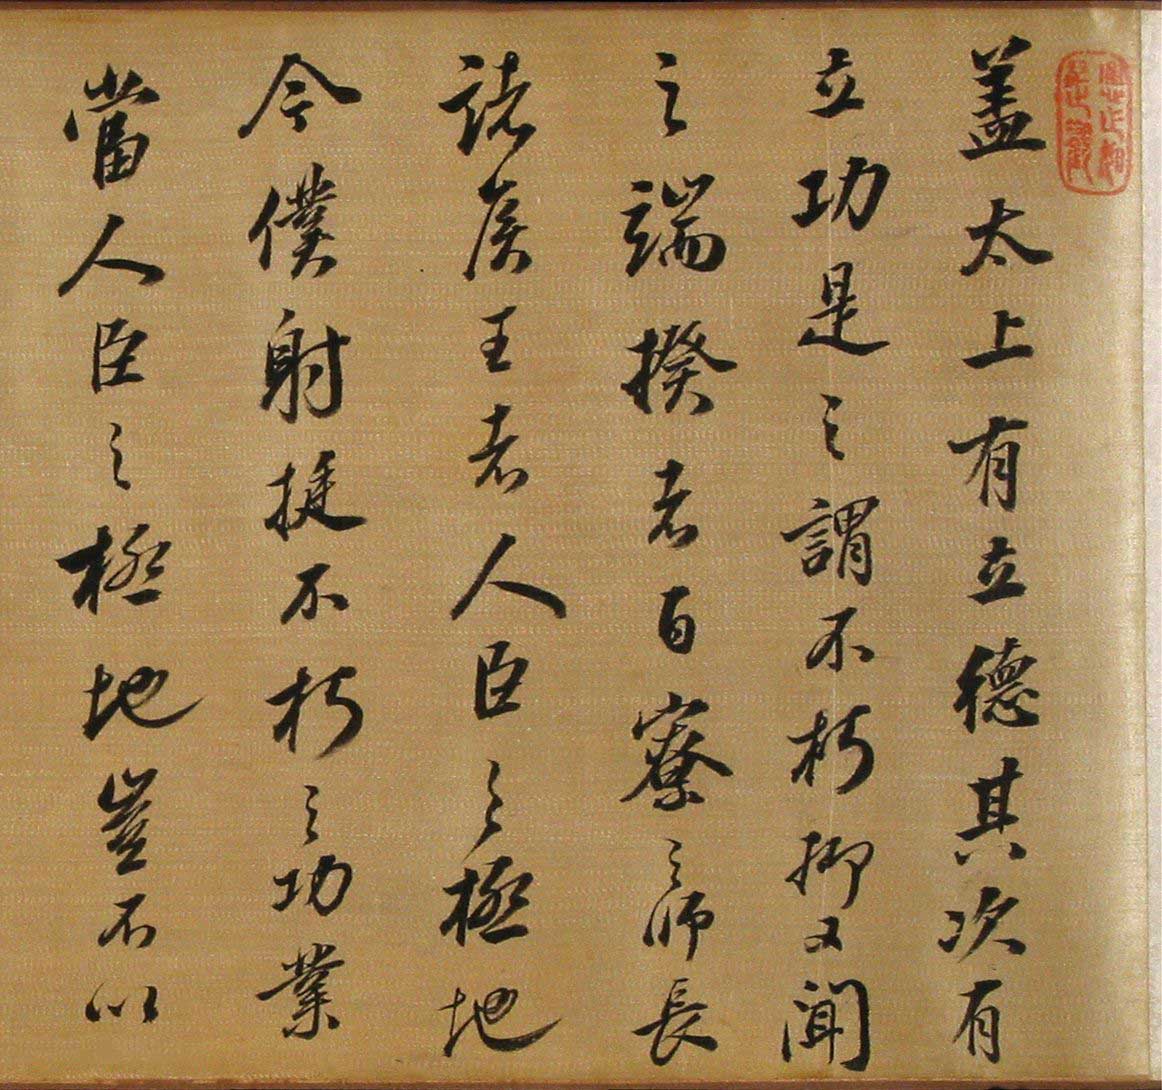 蓋太上有立德其次有
立功是之謂不朽抑又聞
之端揆者百寮之師長
諸侯王者人臣之極地
今僕射挺不朽之功業
當人臣之極地豈不以